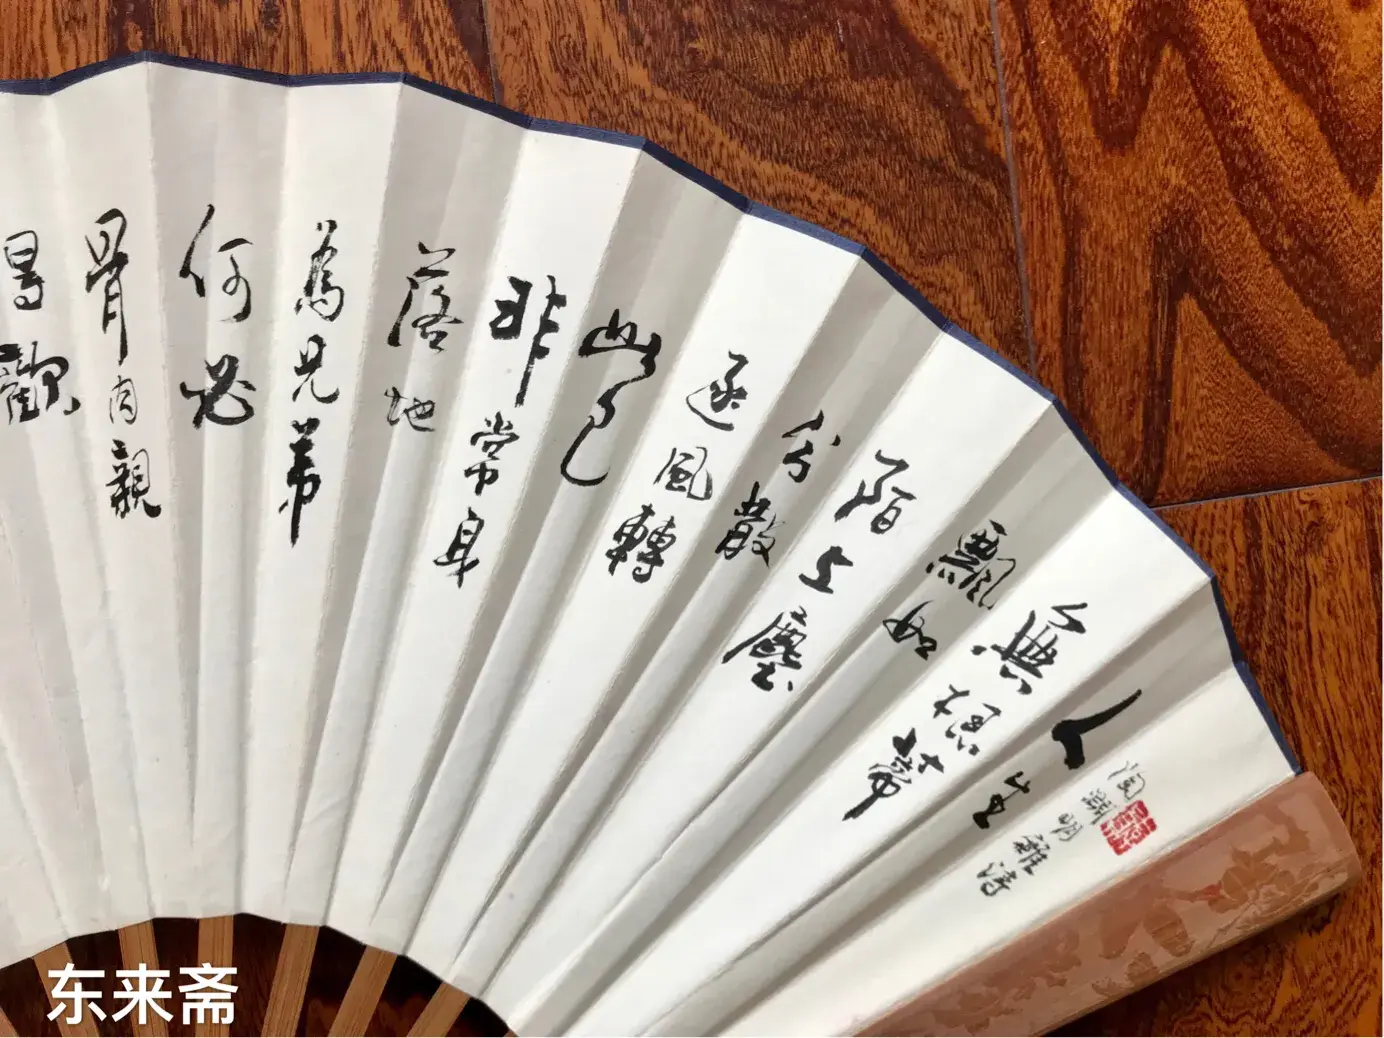 陶淵明雜詩
人生
無根蒂
飄如
陌上塵
分散
逐風轉
此已
非常身
落地
為兄弟
何必
骨肉親
得歡
东来斋